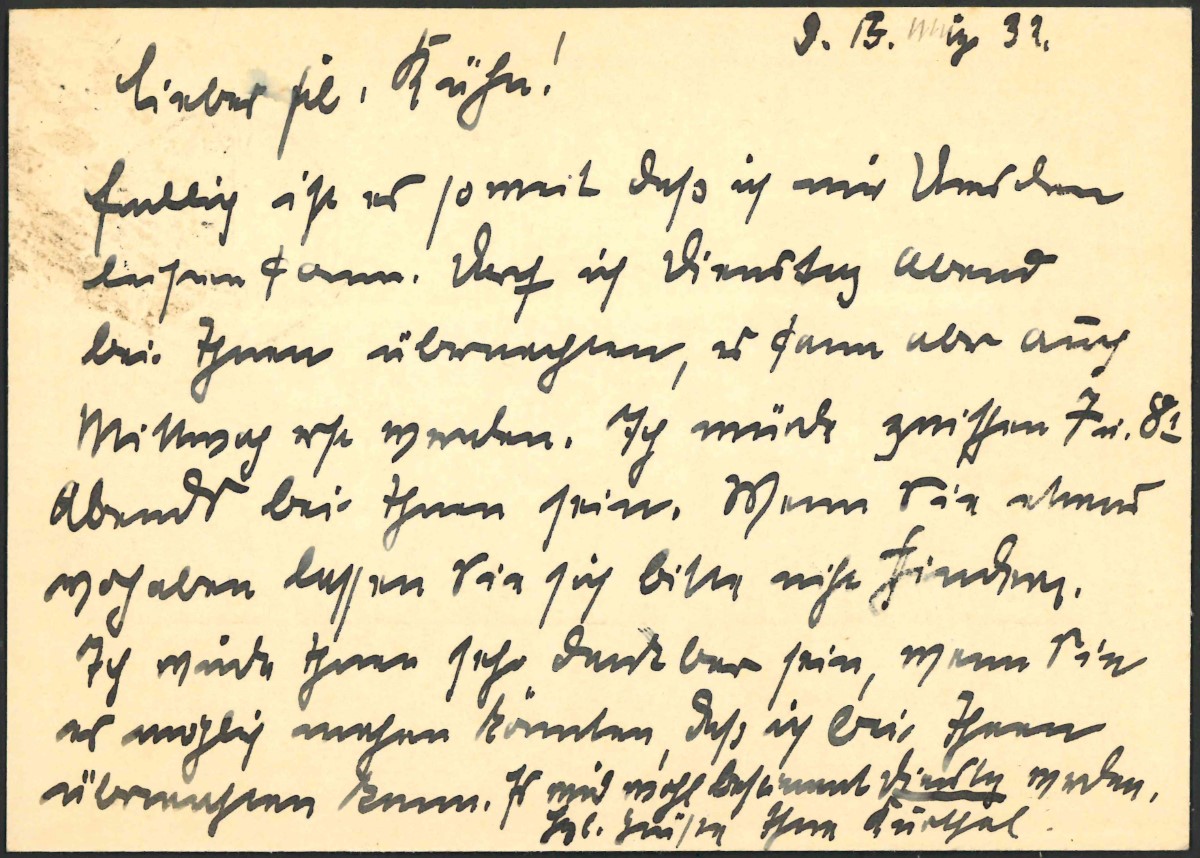 D. B. März 32.
Lieber frl. Kühn!
Endlich ist es so weit daß ich mir Urus den
leisten kann. Darf ich Dienstag Abend
bei Ihnen übernachten, es kann aber auch
Mittwoch erst werden. Ich würde zwischen 7 u. 8½
Abends bei Ihnen sein. Wenn Sie etwas
vorhaben lassen Sie sich bitte nicht hindern.
Ich würde Ihnen sehr dankbar sein, wenn Sie
es möglich machen könnten, daß ich bei Ihnen
übernachten kann. Es wird wohl bestimmt Dienstag werden.
Hzl. Grüße Ihre